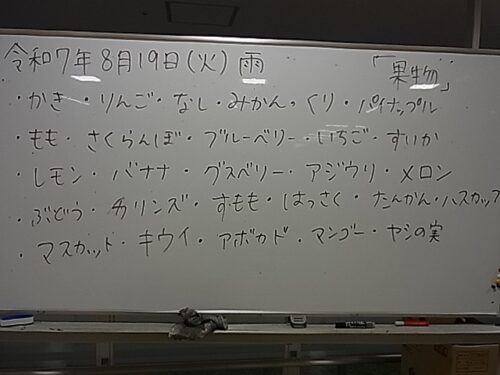 令和7年8月19日(火) 雨 「果物」
・かき・りんご・なし・みかん・くり・パイナップル
・もも・さくらんぼ・ブルーベリー・いちご・すいか
・レモン・バナナ・グスベリー・アジウリ・メロン
・ぶどう・チリンズ・すもも・はっさく・たんかん・ハスカップ
・マスカット・キウイ・アボカド・マンゴー・ヤシの実